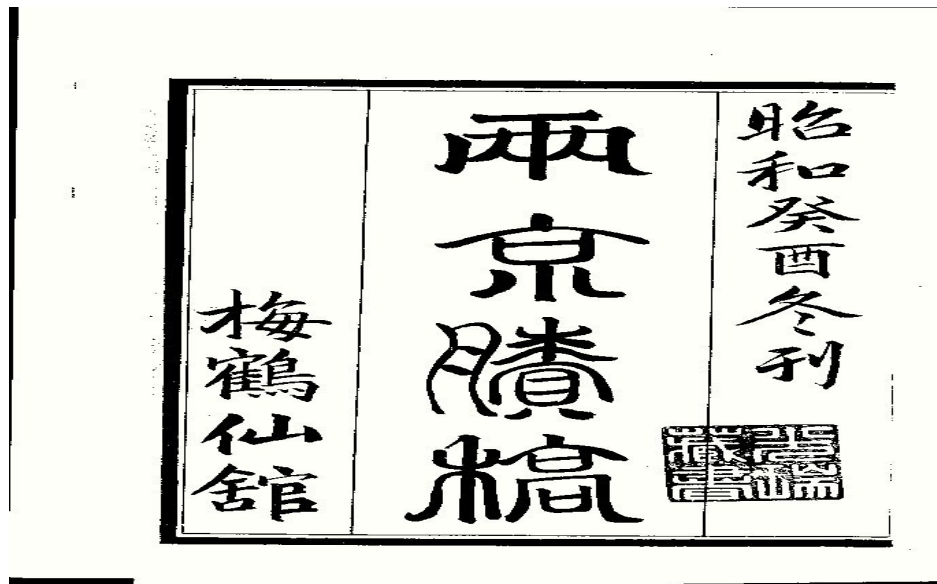 昭和癸酉冬刊
兩京賸稿
梅鶴仙舘